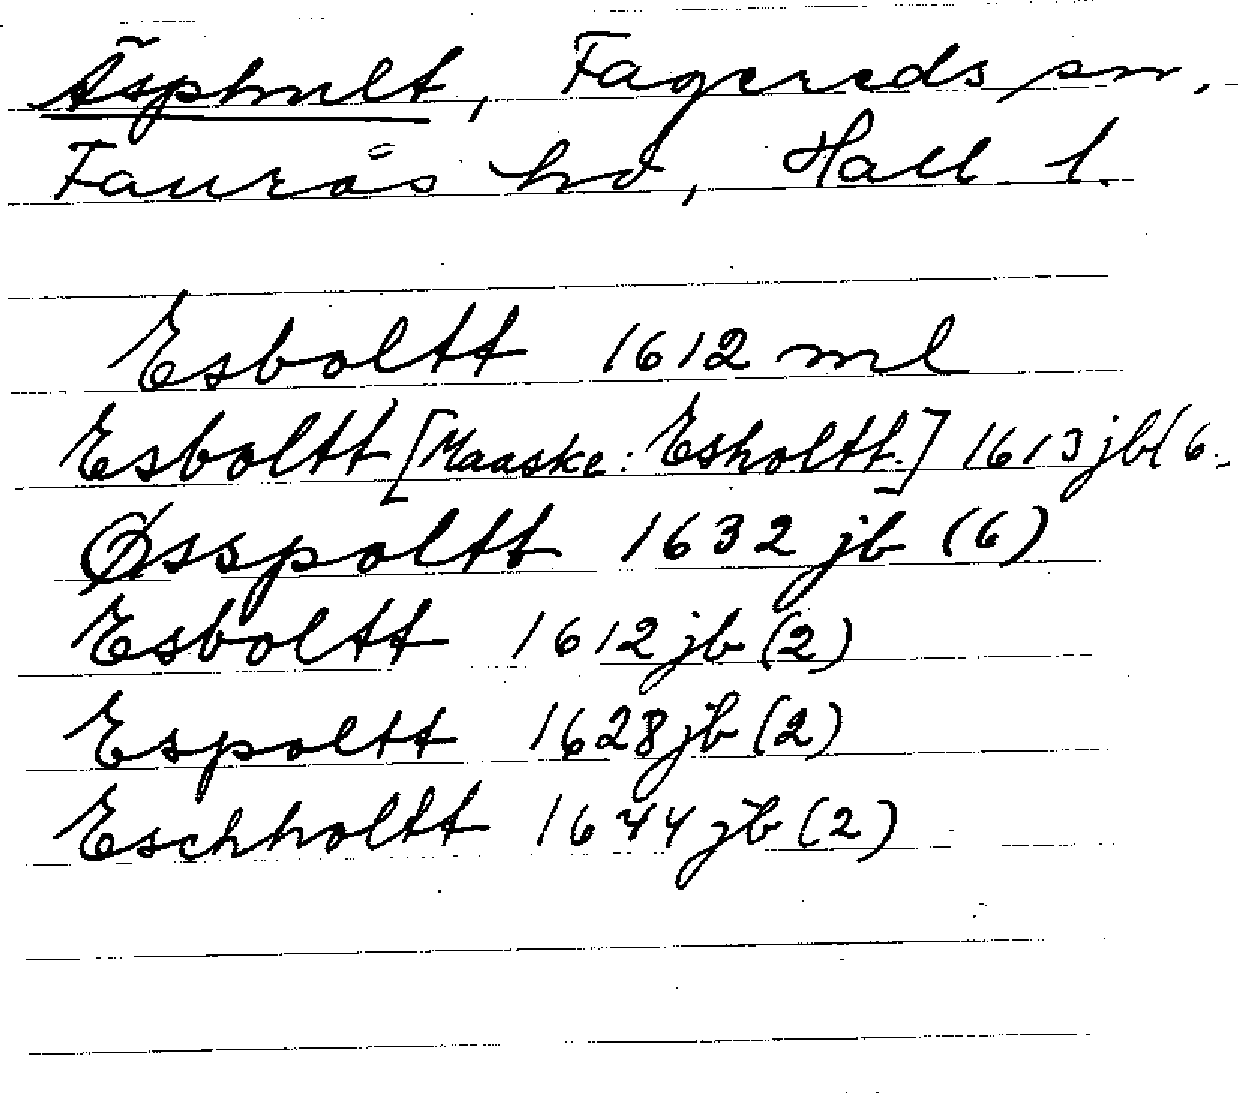 Äsphult, Fagereds sn,
Faurås hd, Hall l.
Esboltt 1612 ml
Esboltt [Maaske: Esholtt.] 1613 jb(6.
Øsspoltt 1632 jb (6)
Esboltt 1612 jb (2)
Espoltt 1628 jb (2)
Eschholtt 1644 jb (2)